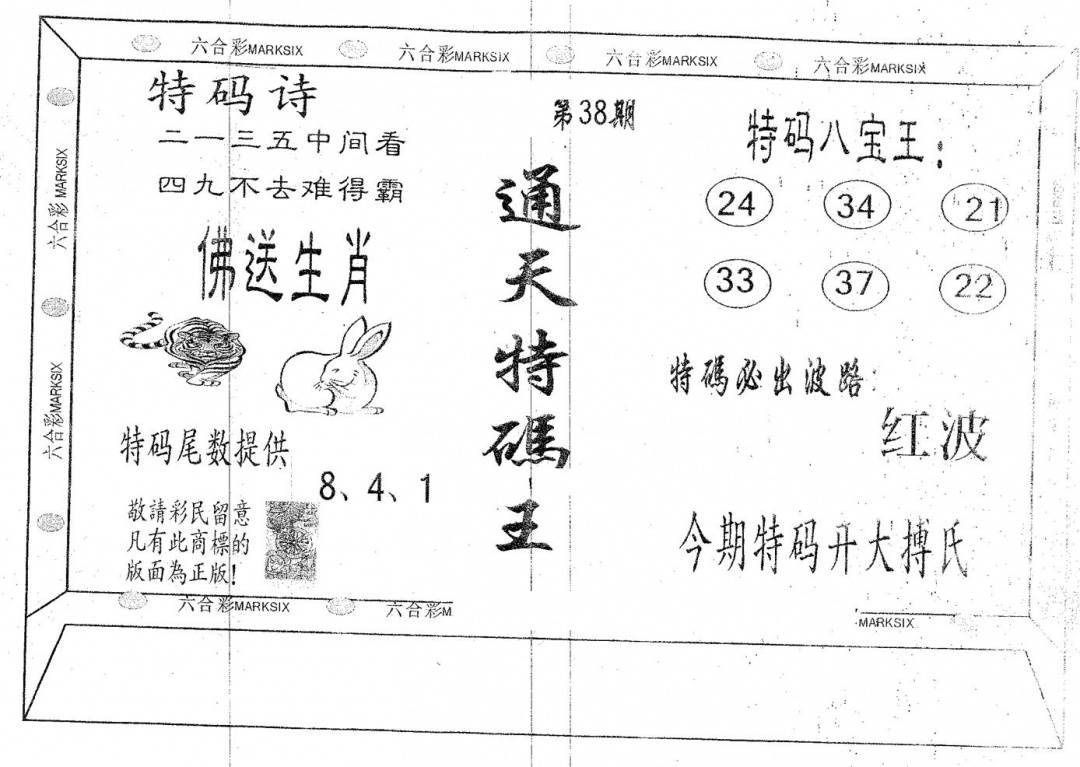 六合彩MARKSIX 六合彩MARKSIX 六合彩MARKSIX 六合彩MARKSIX
六合彩MARKSIX
六合彩MARKSIX
特码诗
二一三五中间看
四九不去难得霸
佛送生肖
特码尾数提供
8、4、1
敬請彩民留意
凡有此商標的
版面為正版!
第38期
通天特碼王
特码八宝王:
24 34 21
33 37 22
特碼必出波路:
红波
今期特码开大搏氏
六合彩MARKSIX 六合彩M
MARKSIX